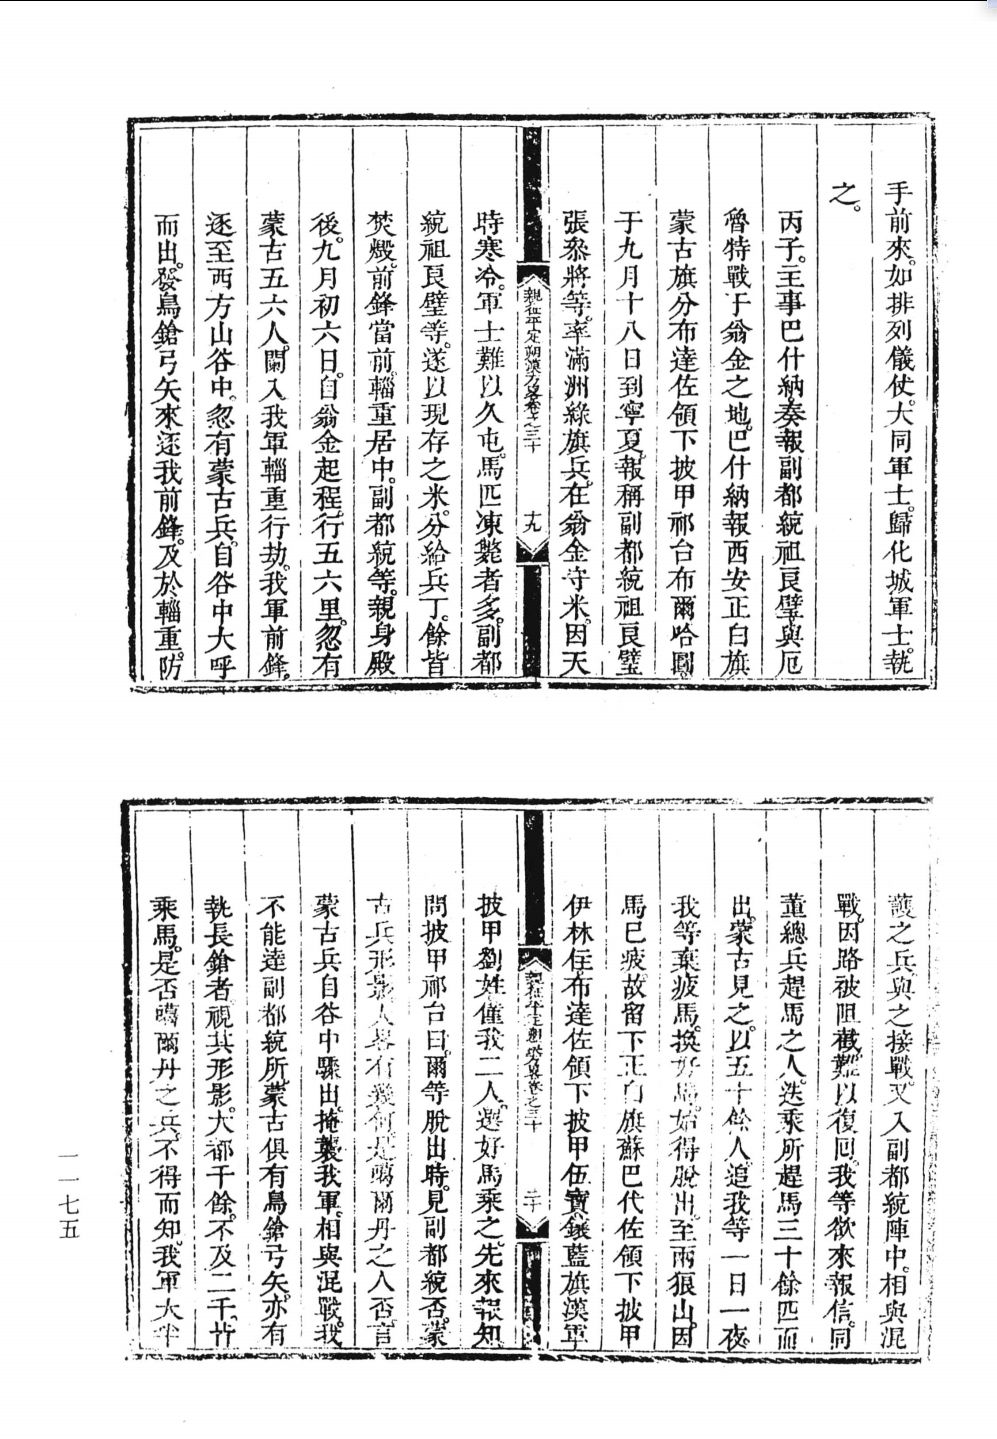 手前來。如排列儀仗。大同軍士。歸化城軍士。執
之。
丙子。主事巴什納。奏報副都統祖良璧。與厄
魯特戰于翁金之地。巴什納報西安正白旗
蒙古旗分布達佐領下披甲祁台布爾哈圖。
于九月十八日到寧夏。報稱副都統祖良璧
張叅將等。率滿洲綠旗兵。在翁金守米。因天
親征平定朔漠方畧卷之三十
十九
時寒冷。軍士難以久屯。馬匹凍斃者多。副都
統祖良璧等。遂以現存之米。分給兵丁。餘皆
焚燬。前鋒當前。輜重居中。副都統等。親身殿
後。九月初六日。自翁金起程。行五六里。忽有
蒙古五六人。闌入我軍輜重行劫。我軍前鋒。
逐至西方山谷中。忽有蒙古兵。自谷中大呼
而出。發鳥鎗弓矢來逐我前鋒。及於輜重。防
護之兵與之接戰。又入副都統陣中。相與混
戰。因路被阻截。難以復回。我等欲來報信。同
董總兵趕馬之人。迭乘所趕馬三十餘匹而
出。蒙古見之。以五十餘人。追我等一日一夜。
我等棄疲馬。換好馬。始得脫出。至兩狼山。因
馬已疲。故留下正白旗蘇巴代佐領下披甲
伊林住。布達佐領下披甲伍寶。鑲藍旗漢軍
親征平定朔漠方畧卷之三十
二十
披甲劉姓。僅我二人。選好馬乘之先來報知
問披甲祁台曰。爾等脫出時。見副都統否。蒙
古兵形影人畧有幾何。是噶爾丹之人否。言
蒙古兵自谷中驟出。掩襲我軍。相與混戰。我
不能達副都統所。蒙古俱有鳥鎗弓矢。亦有
執長鎗者。視其形影。大都千餘。不及二千。竹
乘馬。是否噶爾丹之兵。不得而知。我軍大半
一一七五